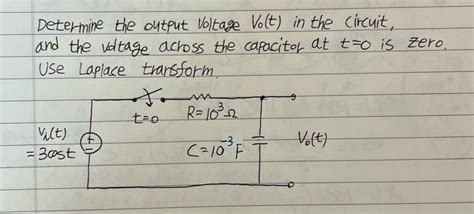 Determine the output Voltage Vo(t) in the Circuit,
and the voltage across the capacitor at t=0 is zero.
Use Laplace transform.
t=0
R=10³Ω
Vi(t)
= 3cost
+
−
C=10⁻³F
Vo(t)